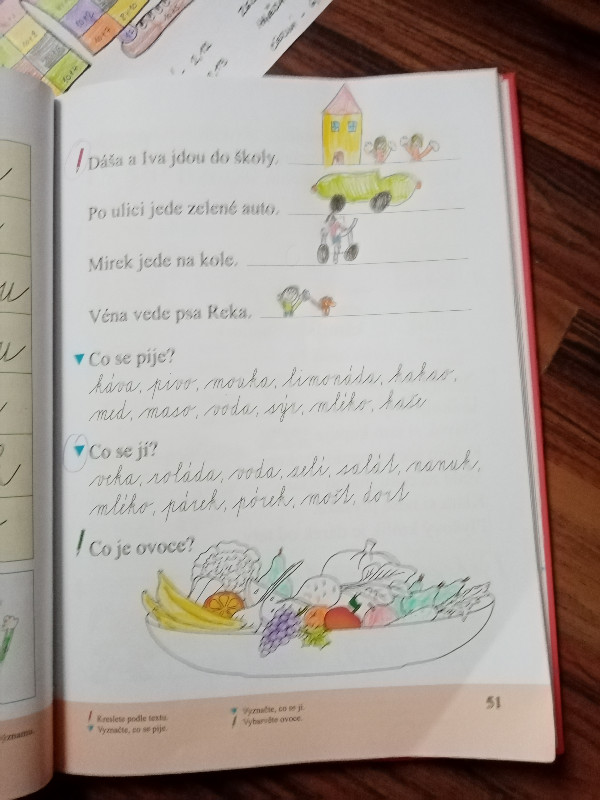 Dáša a Iva jdou do školy.
Po ulici jede zelené auto.
Mirek jede na kole.
Véna vede psa Reka.
Co se pije?
káva, pivo, mouka, limonáda, kakao,
med, maso, voda, sýr, mléko, kaše
Co se jí?
veka, roláda, voda, zelí, salát, nanuk,
mléko, párek, pórek, mošt, dort
Co je ovoce?
Kreslete podle textu.
Vyznačte, co se pije.
Vyznačte, co se jí.
Vybarvěte ovoce.
51